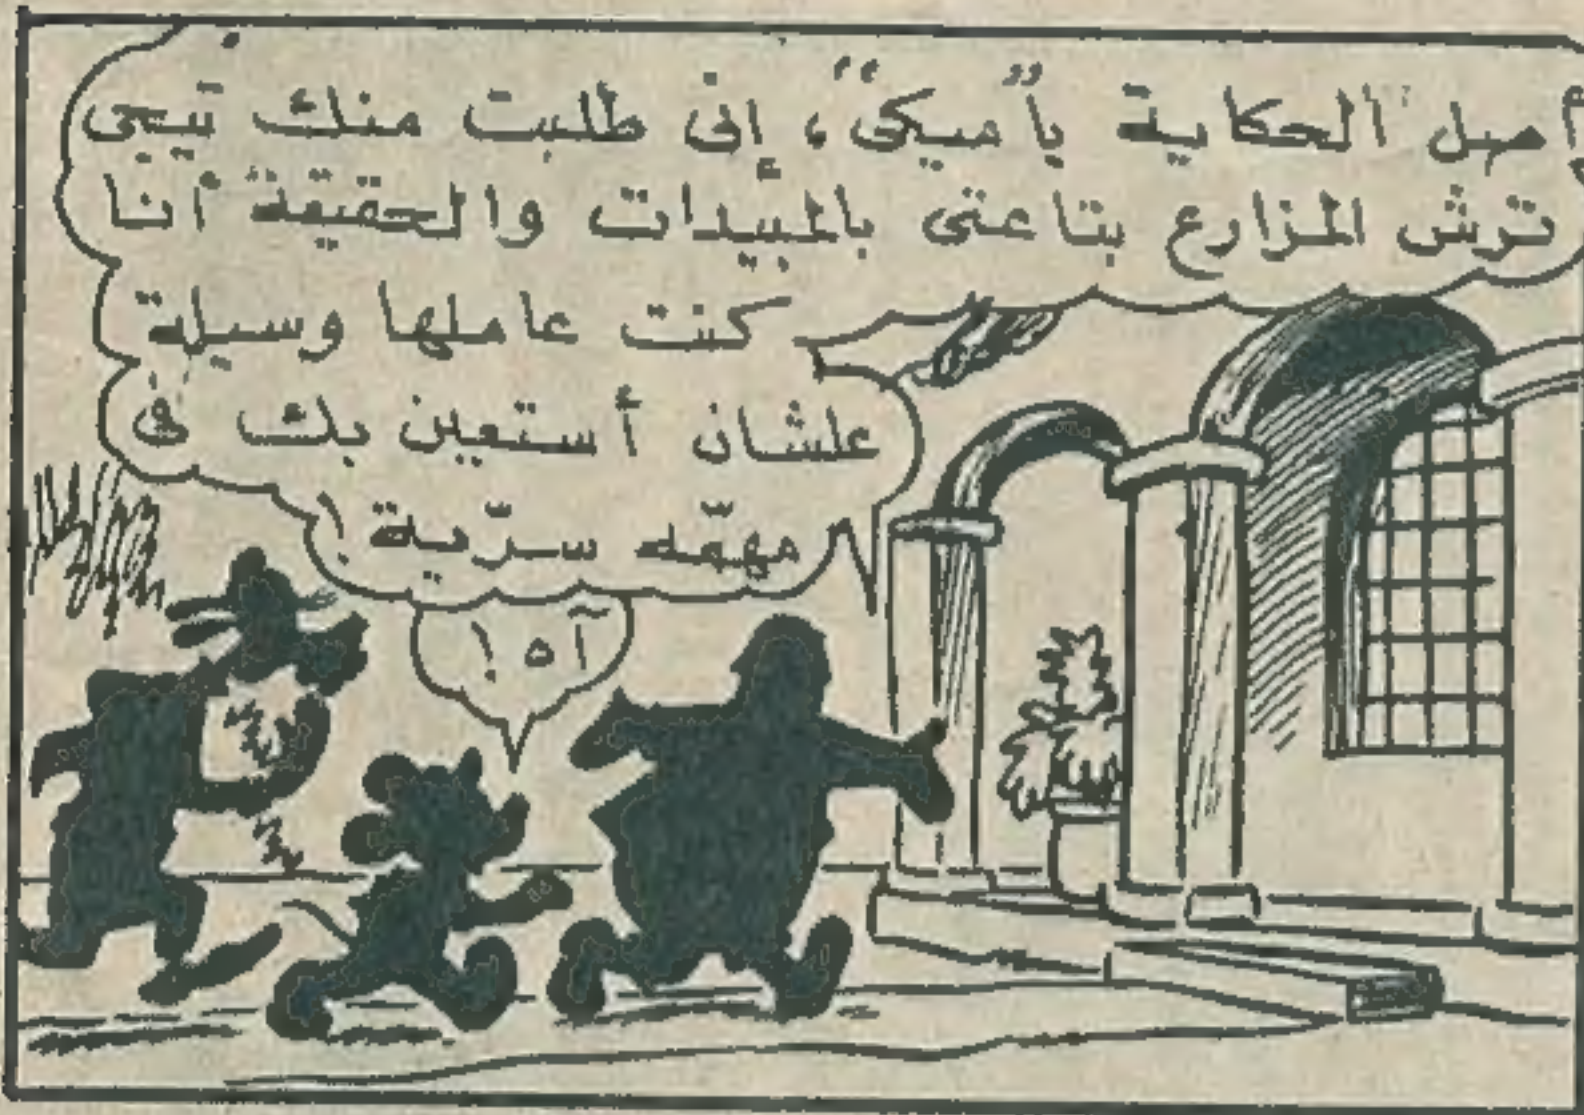 أصل الحكاية يا "ميكى"، إنى طلبت منك تيجى
ترش المزارع بتاعتى بالمبيدات والحقيقة أنا
كنت عاملها وسيلة
علشان أستعين بك فى
مهمّه سرّية!
آه!